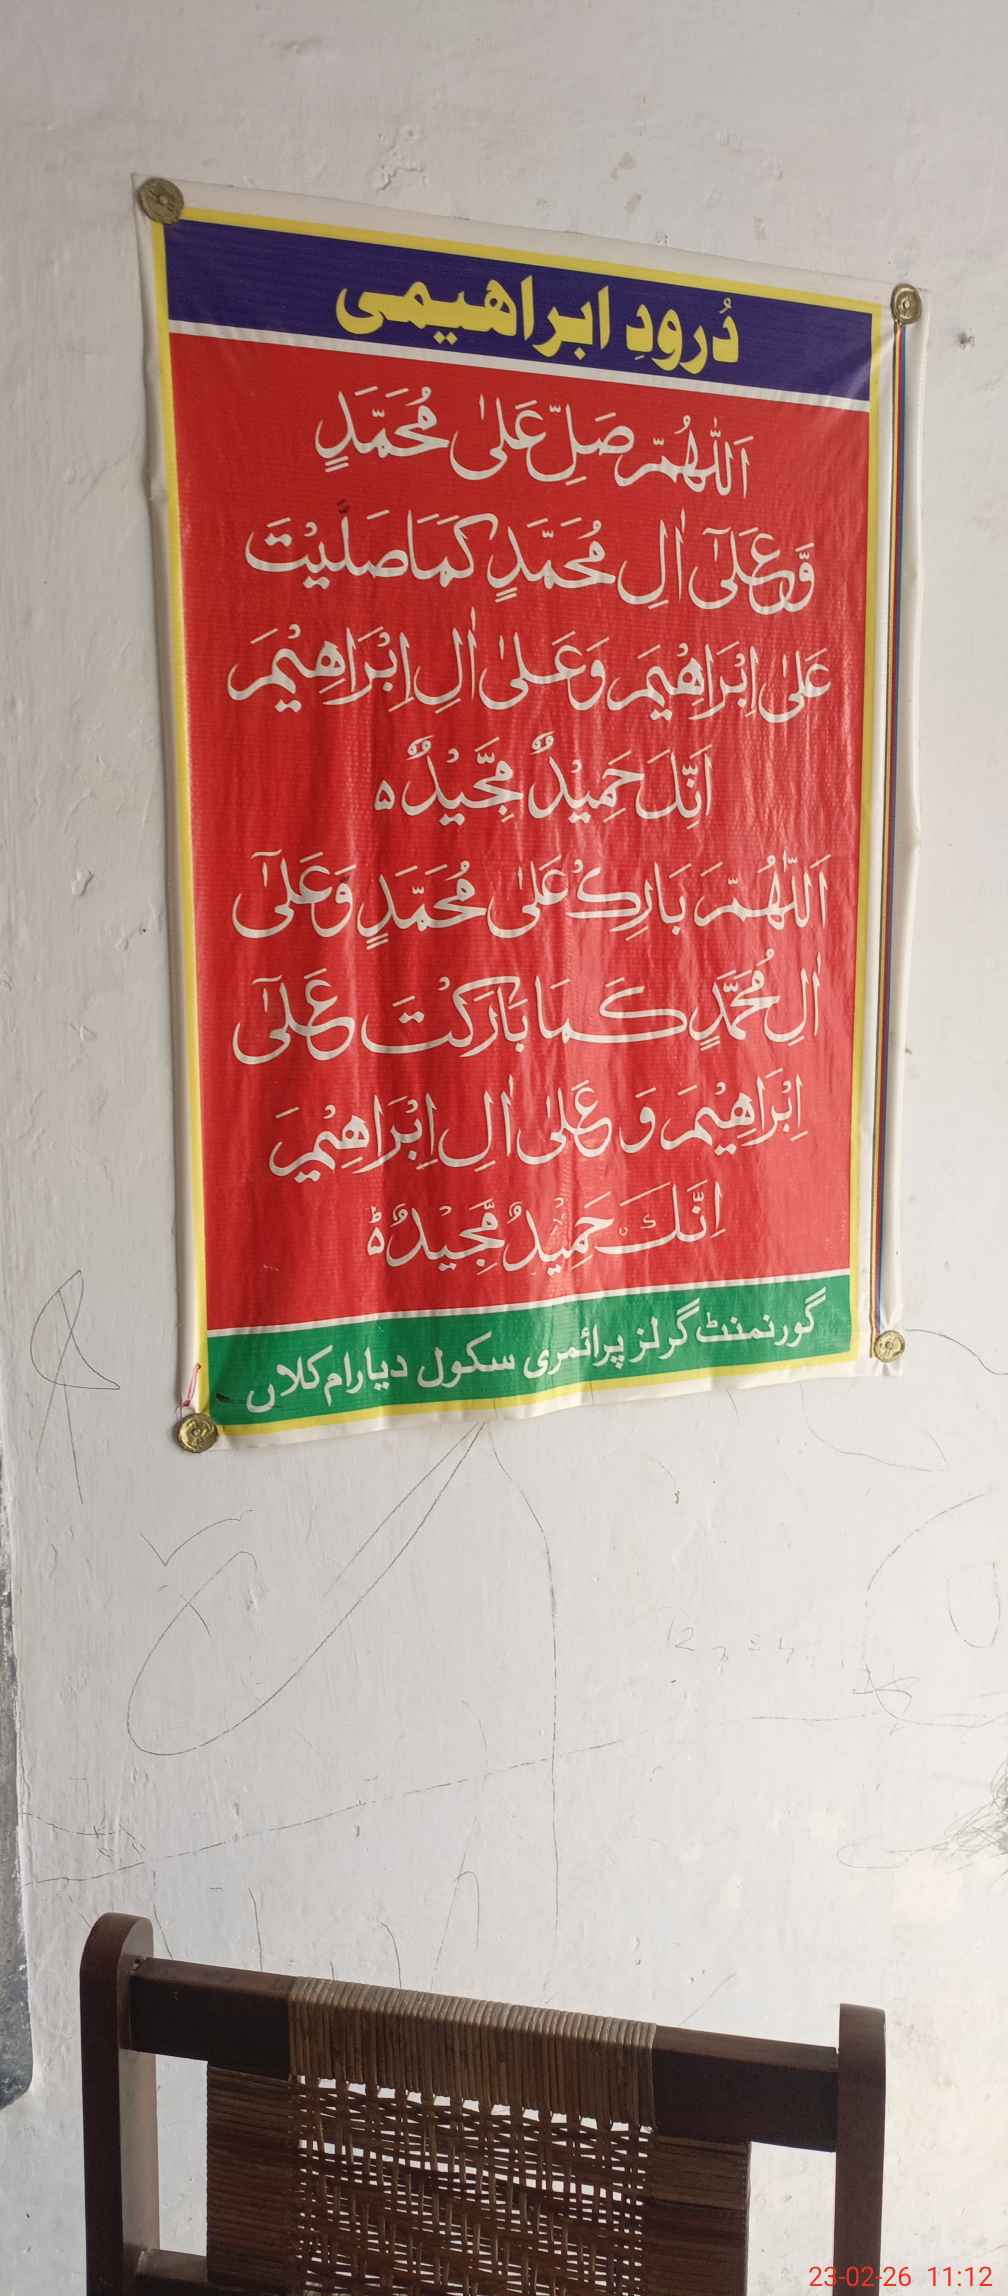 دُرودِ ابراھیمی
اَللّٰھُمَّ صَلِّ عَلیٰ مُحَمَّدٍ
وَّعَلیٰٓ اٰلِ مُحَمَّدٍ کَمَا صَلَّیْتَ
عَلیٰ اِبْرَاھِیْمَ وَعَلیٰ اٰلِ اِبْرَاھِیْمَ
اِنَّکَ حَمِیْدٌ مَّجِیْدٌ ہ
اَللّٰھُمَّ بَارِکْ عَلیٰ مُحَمَّدٍ وَعَلیٰٓ
اٰلِ مُحَمَّدٍ کَمَا بَارَکْتَ عَلیٰٓ
اِبْرَاھِیْمَ وَ عَلیٰٓ اٰلِ اِبْرَاھِیْمَ
اِنَّکَ حَمِیْدٌ مَّجِیْدٌ ہ
گورنمنٹ گرلز پرائمری سکول دیارام کلاں
23-02-26 11:12